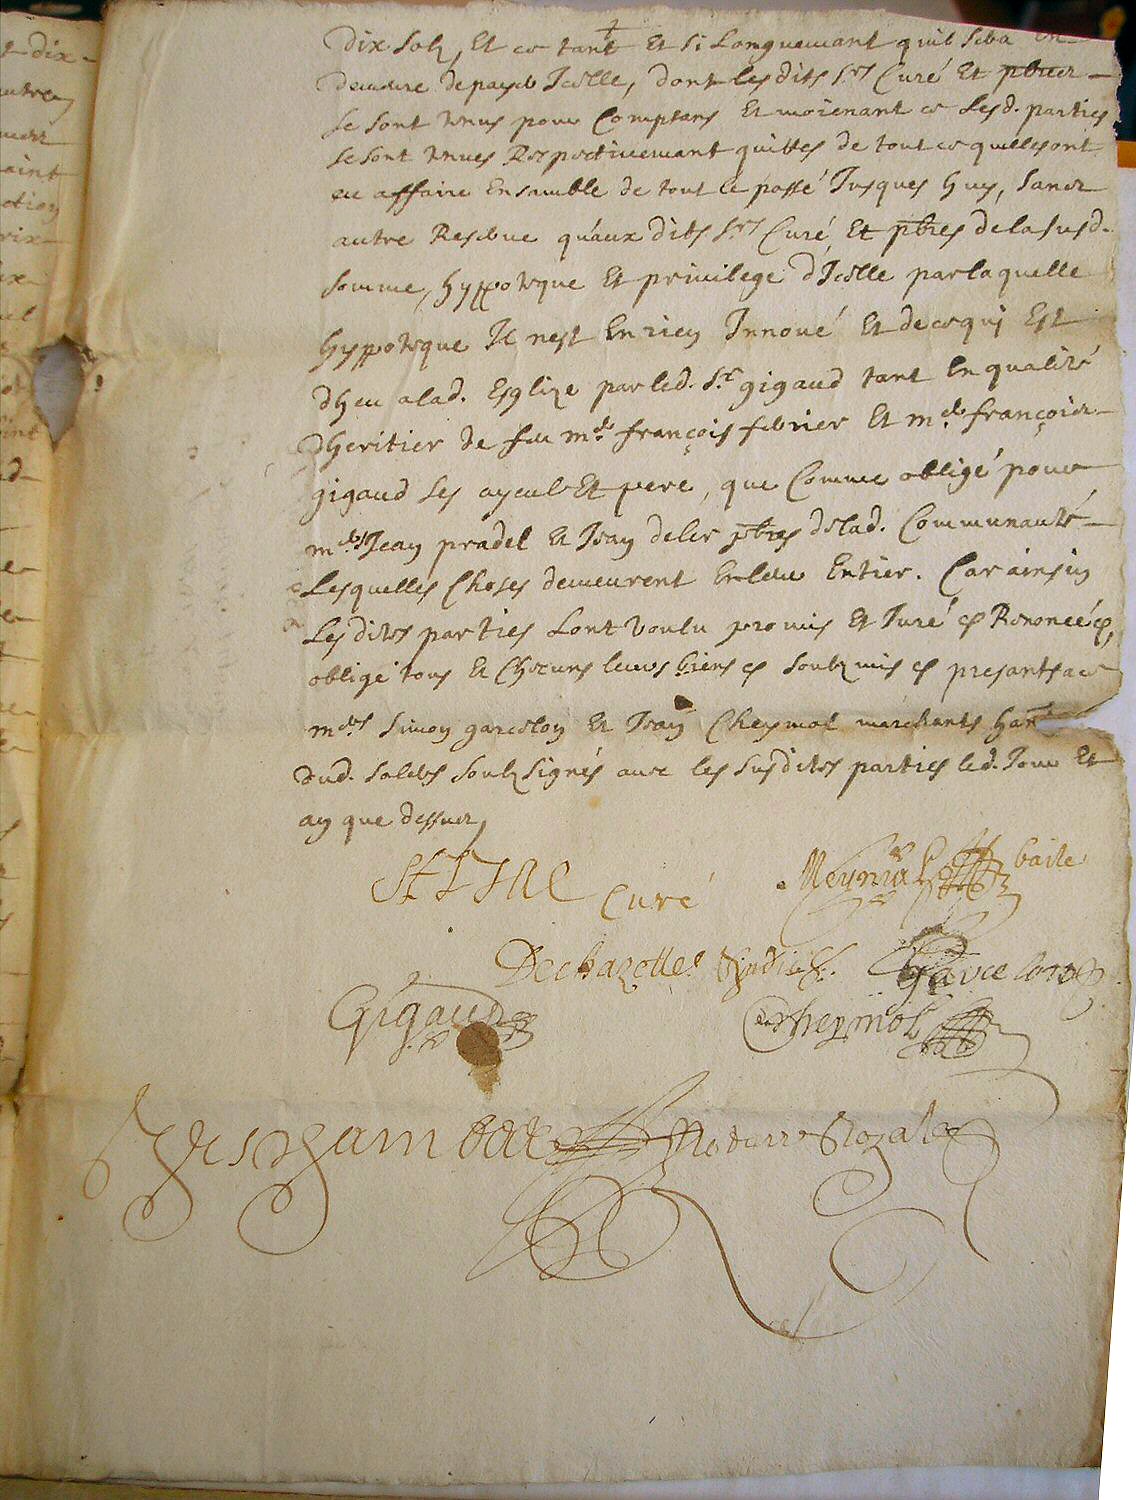 dix solz, Et ce tant Et si Longuemant quil sera en
demeure de payer Icelle, dont lesdits srs Curé Et pbres
se sont tenus pour Comptans Et moienant ce Lesd. parties
se sont tenues Respectiuemant quittes de tout ce quelles ont
eu affaire Ensamble de tout le passé Jusques huy, sans
autre Reserue quaux dits srs Curé Et pbres de la susd.
somme, hyppoteque Et priuilege dIcelle par laquelle
hyppoteque Il nest En rien Innoué Et de ce qui Est
dheu a lad. Esglize par led. sr gigaud tant En qualité
dheritier de feu me françois febrier Et me françois
gigaud ses ayeul Et pere, que Comme obligé pour
mes Jean pradel et Jean deler pbres de lad. Communauté
Lesquelles Choses demeurent En leur Entier. Car ainsin
Lesdites parties Lont voulu promis Et Juré & Renoncé &
obligé tous et Chacuns leurs biens & soubzmis & presants a ce
mes simon garcelon et Jean Cheymol marchants hants
dud. solers soubzsignés auec les susdites parties led. Jour Et
an que dessus,
Curé
Meynial baile
Dechazettes sindic
Garcelon
Gigaud
Cheymol
Notaire Royal